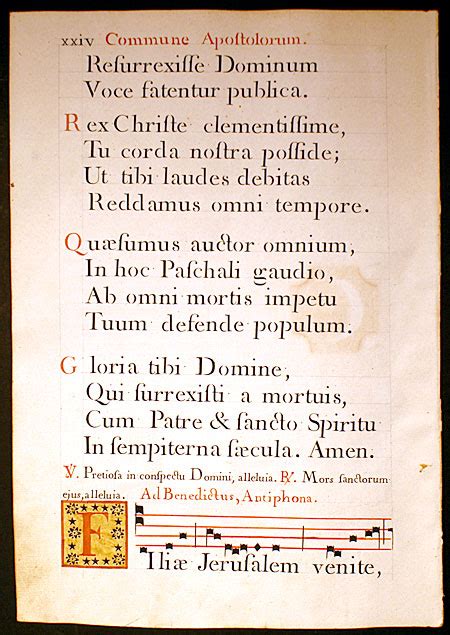 xxiv Commune Apostolorum.
Resurrexiſſe Dominum
Voce fatentur publica.
Rex Chriſte clementiſſime,
Tu corda noſtra poſſide;
Ut tibi laudes debitas
Reddamus omni tempore.
Quæſumus auctor omnium,
In hoc Paſchali gaudio,
Ab omni mortis impetu
Tuum defende populum.
Gloria tibi Domine,
Qui ſurrexiſti a mortuis,
Cum Patre & ſancto Spiritu
In ſempiterna ſæcula. Amen.
℣. Pretioſa in conſpectu Domini, alleluia. ℟. Mors ſanctorum
ejus, alleluia. Ad Benedictus, Antiphona.
Filiæ Jeruſalem venite,